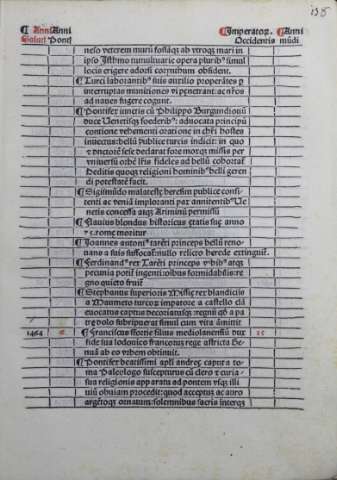 158
¶ Anni Anni ¶ Imperator. ¶ Anni
Salutis Pont Occidentis mūdi
neso veterem murū fossāqȝ ab vtroqȝ mari in
ipso Isthmo tumultuario opera pluribꝰ simul
locis erigere adorsi corynthum obsident.
¶ Turci laborantibꝰ suis auxilio properātes
interruptas munitiones vi penetrant: ac nr̄os
ad naues fugere cogunt.
¶ Pontifex initis cū Philippo Burgundionū
duce Venetisqȝ foederibꝰ: aduocata principū
contione vehementi oratione in chr̄i hostes
inuectus: bellū publice turcis indicit: in quo
ductorē sese declarat fore: missis per
vniuersū orbē lr̄is fideles ad bellū cohortat̄
Deditis quoqȝ religioni hominibꝰ belli geren
di potestatē facit.
¶ Sigismūdo malatestȩ heresim publice confi
tenti ac veniā imploranti pax annitentibꝰ Ue
netis concessa atqȝ Ariminū permissū
¶ Flauius blondus historicus etatis suȩ anno
romȩ moritur
¶ Joannes antoniꝰ tarēti princeps bellū reno-
uans a suis suffocatꝰ: nullo relicto herede extinguit̄.
¶ Ferdinandꝰ rex Tarēti princeps vrbibꝰ atqȝ
pecunia potitꝰ ingenti: oībus formidabilis: re
gno quieto fruit̄
¶ Stephanus superioris Missiȩ rex blandiciis
a Maumeto turcoȝ imperatore a castello
euocatus captus decoriatusqȝ regnū qđ a pa
tre dolo subripuerat simul cum vita amittit
1464 6 ¶ Franciscus sfortie filius mediolanensiū dux 25
fide sua lodouico francorū rege astricta Ge-
nuā ab eo vrbem obtinuit.
¶ Pontifex beatissimi apl̄i andreȩ caput a to-
ma Paleologo suscepturus cū clero et curia
sua religionis apparatu ad pontem vsqȝ milli
uiū obuiam procedit: quod acceptū: ac auro
argētoqȝ ornatum: solemnibus sacris interqȝ